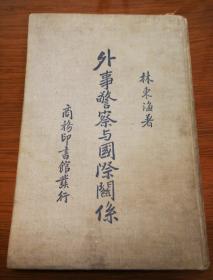 林東海著
外事警察与國際關係
商務印書館發行